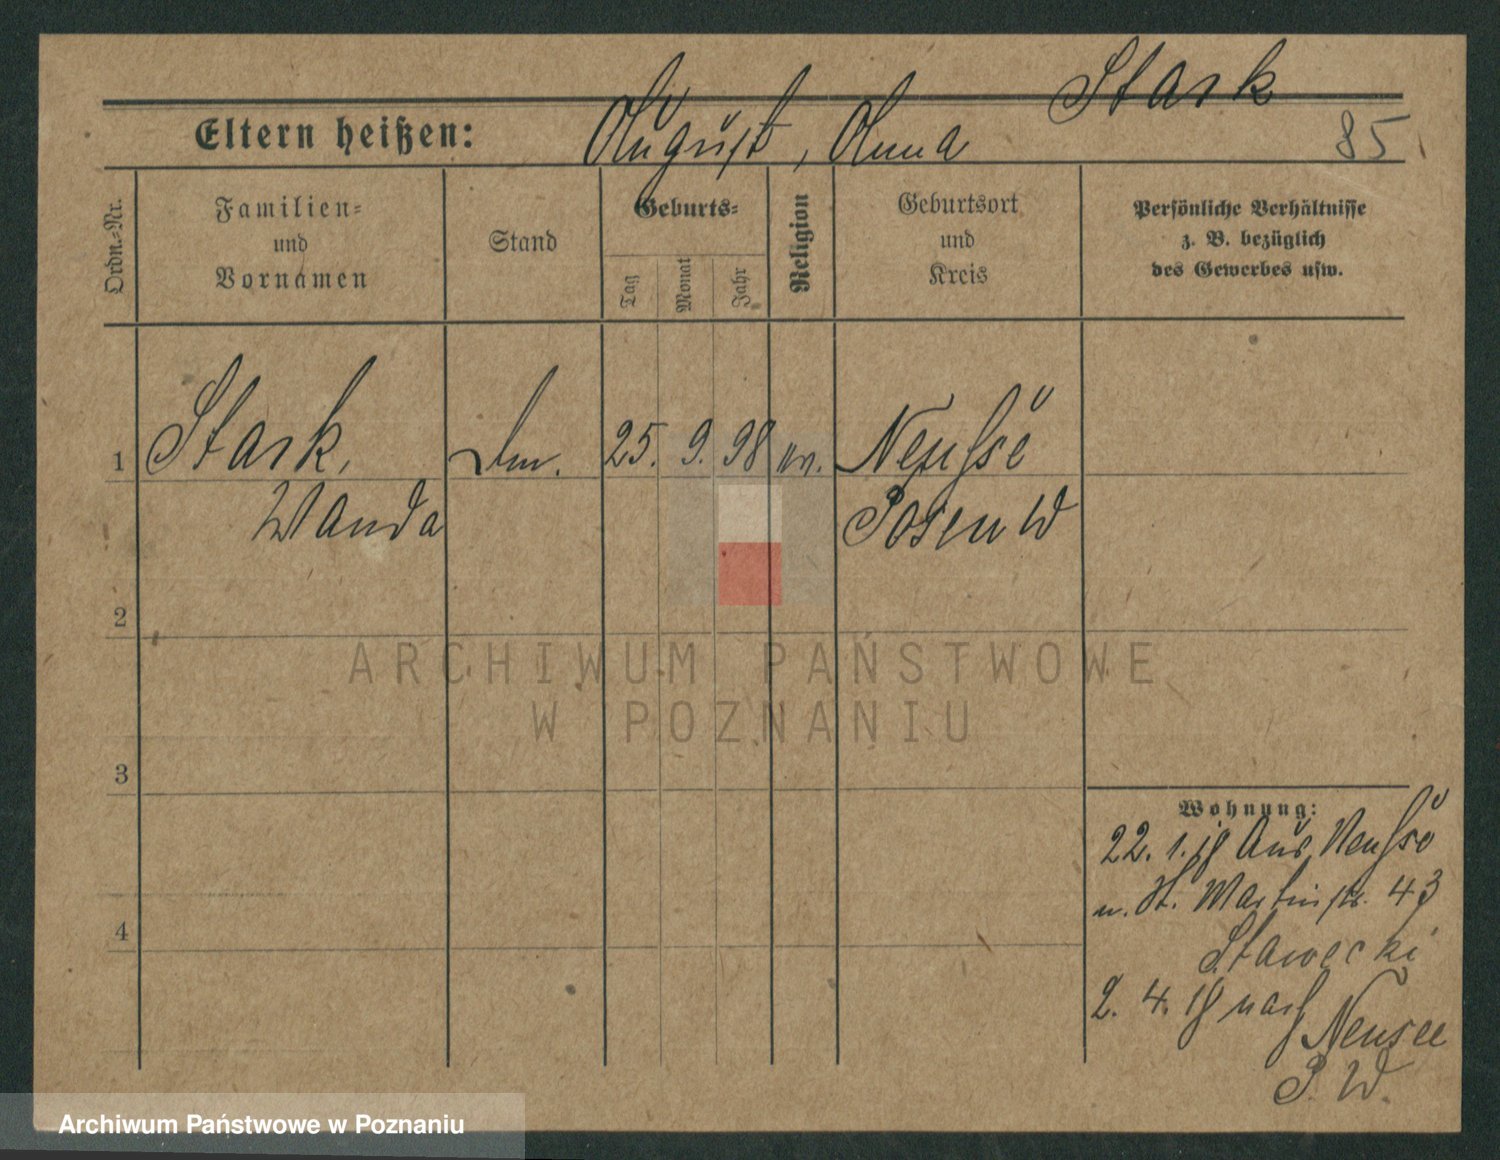 Stark
Eltern heißen: August, Anna
85
Ordn.=Nr.
Familien=
und
Vornamen
Stand
Geburts=
Tag
Monat
Jahr
Religion
Geburtsort
und
Kreis
Persönliche Verhältnisse
z. B. bezüglich
des Gewerbes usw.
1 Stark, 25. 9. 98
Wanda Posen W
2
ARCHIWUM PAŃSTWOWE
W POZNANIU
3
4
Wohnung:
22. 1. 18 aus
St. Martinstr. 43
Stawecki
2. 4. 18 nach
Neusee
P. W.
Archiwum Państwowe w Poznaniu